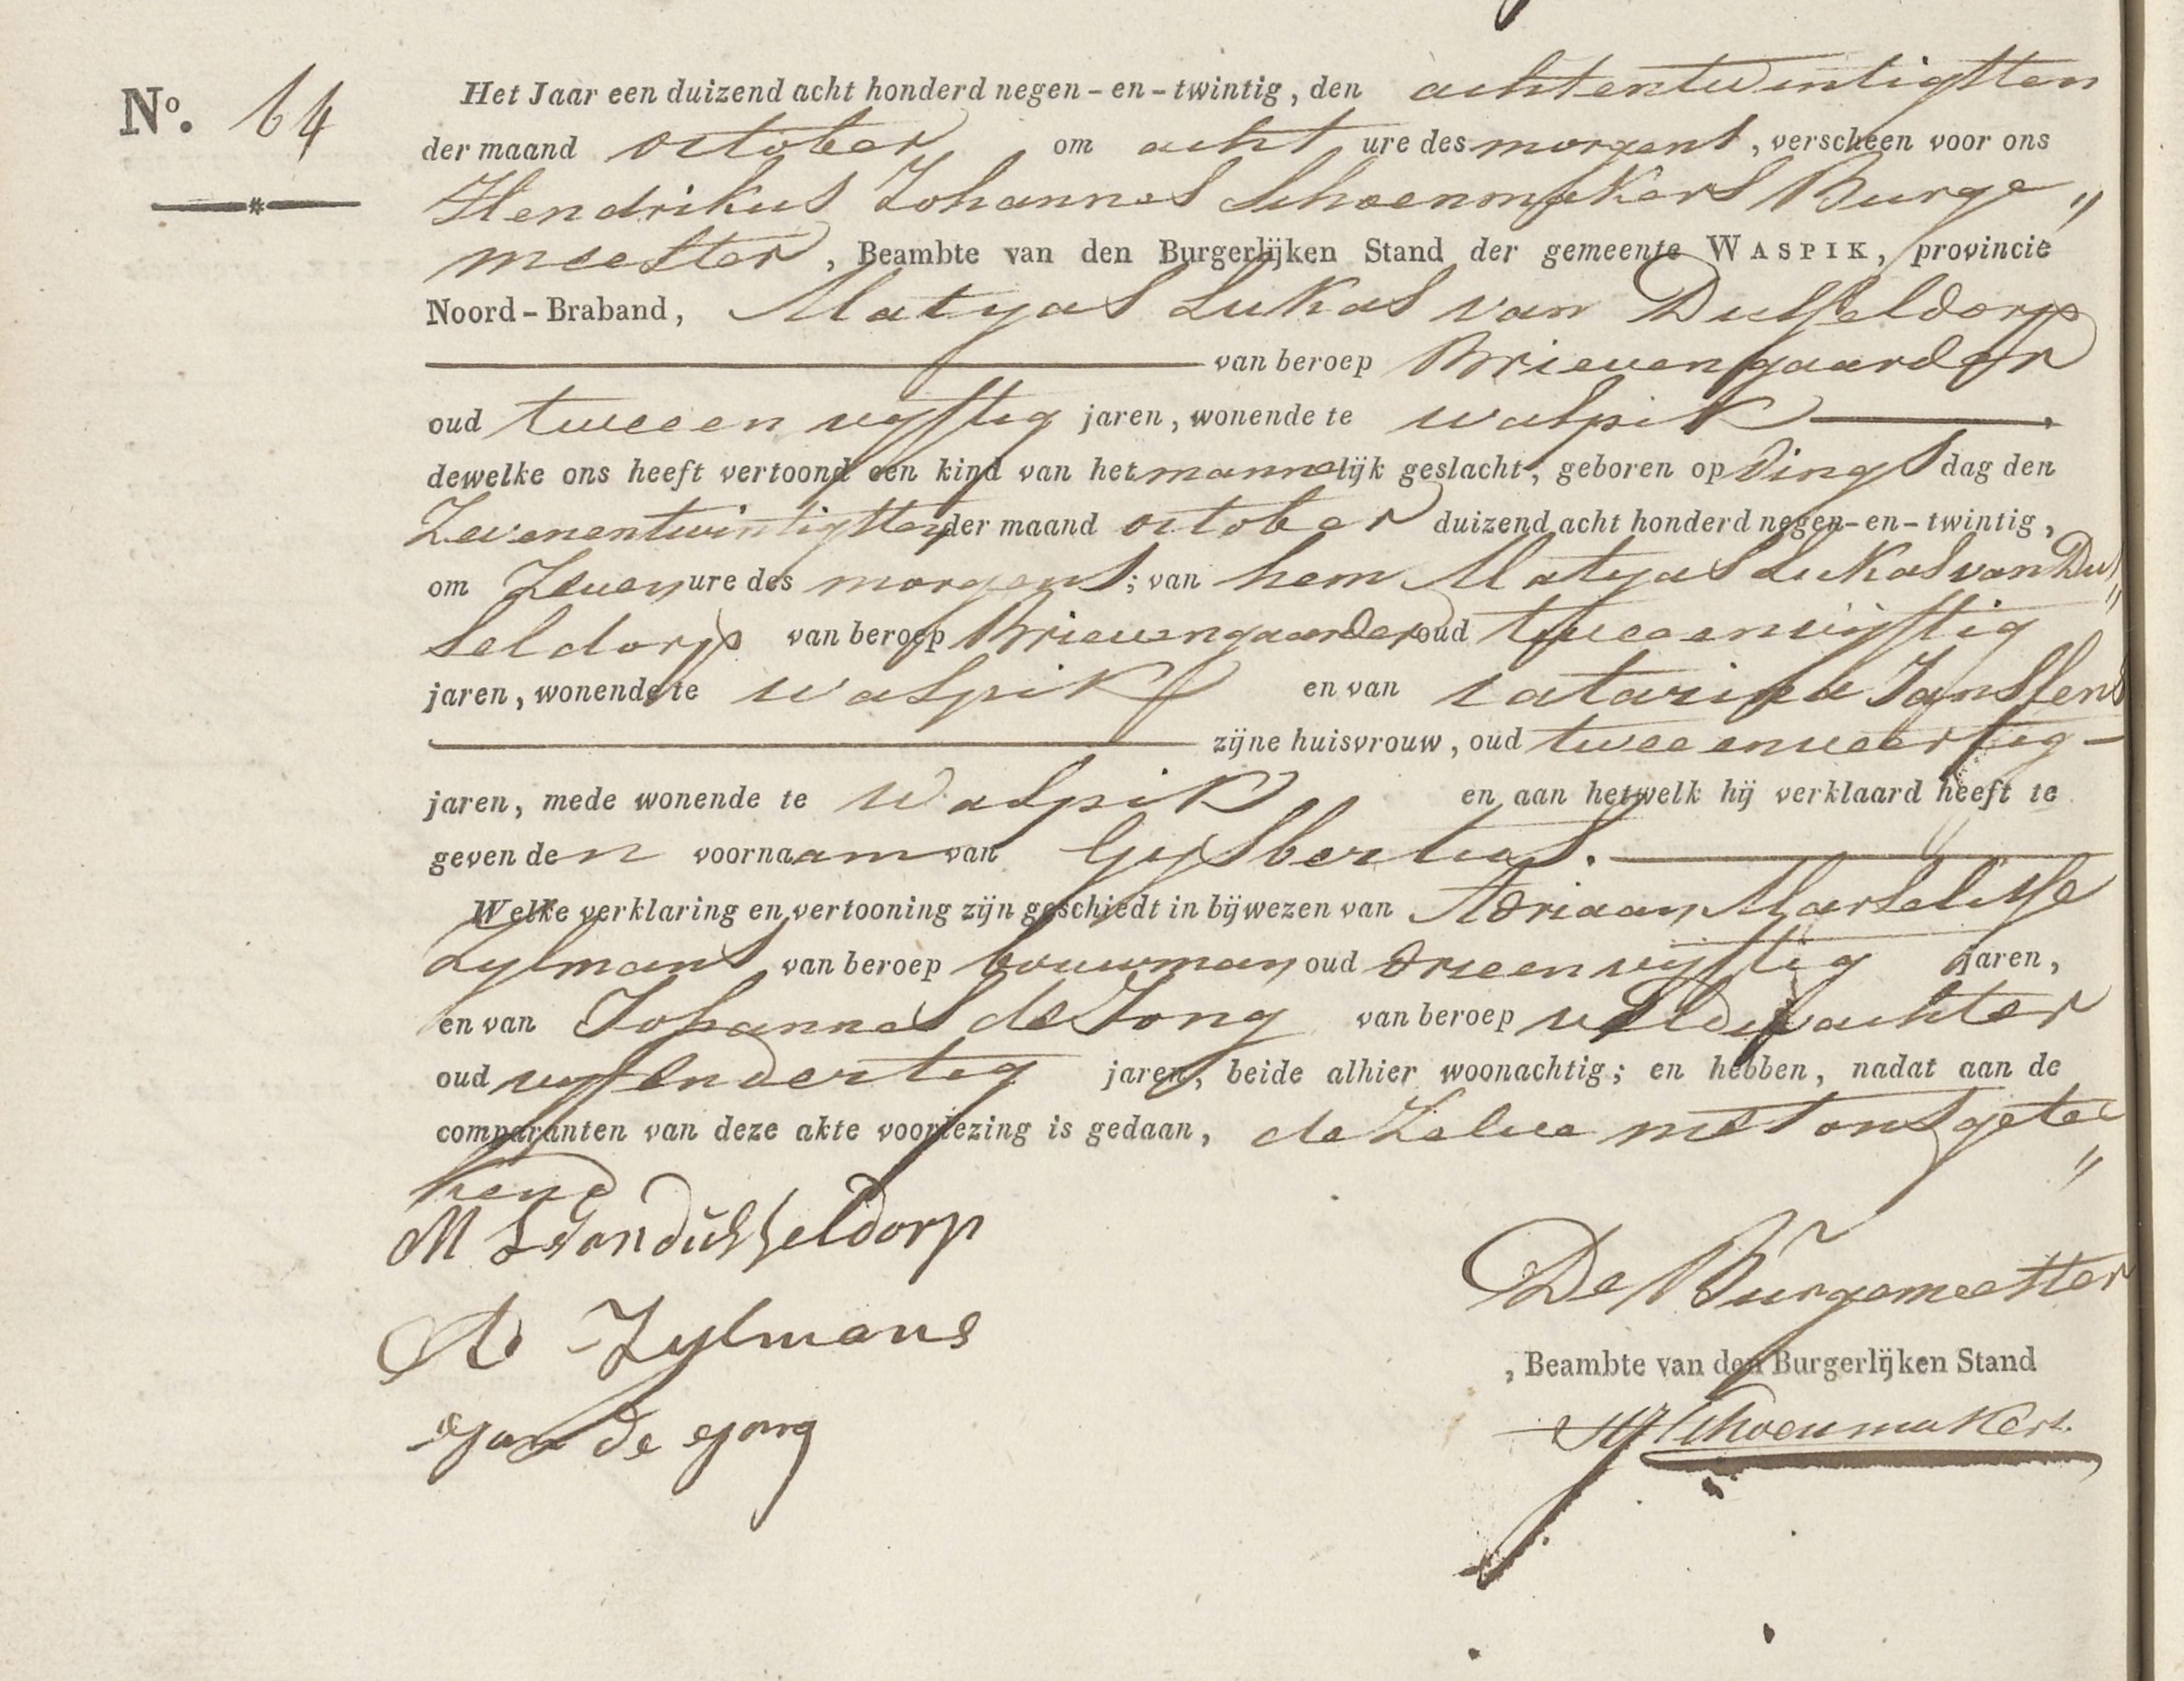 No. 64
Het Jaar een duizend acht honderd negen-en-twintig, den achtentwintigsten
der maand october om acht ure des morgens, verscheen voor ons
Hendrikus Johannes Schoenmakers Burge„
meester, Beambte van den Burgerlijken Stand der gemeente WASPIK, provincie
Noord-Braband, Matyas Lukas van Dusseldorp
van beroep Brievengaarder
oud tweeen vyftig jaren, wonende te waspik
dewelke ons heeft vertoond een kind van het mannelijk geslacht, geboren op dings dag den
Zevenentwintigsten der maand october duizend acht honderd negen-en-twintig,
om Zeven ure des morgens; van hem Matyas Lukas van Dus„
seldorp van beroep Brievengaarder oud tweeenvijftig
jaren, wonende te waspik en van catarina Janssens
zijne huisvrouw, oud tweeenveertig
jaren, mede wonende te Waspik en aan hetwelk hij verklaard heeft te
geven den voornaam van Gysbertus.
Welke verklaring en vertooning zijn geschiedt in bijwezen van Adriaan Marselisse
Zylmans van beroep bouwman oud drieenvijftig jaren,
en van Johannes de Jong van beroep veldwachter
oud vyfendertig jaren, beide alhier woonachtig; en hebben, nadat aan de
comparanten van deze akte voorlezing is gedaan, de Zelve met ons getee„
kend
M L van dusseldorp
A Zylmans
Jan de Jong
De Burgemeester
, Beambte van den Burgerlijken Stand
HJ Schoenmakers